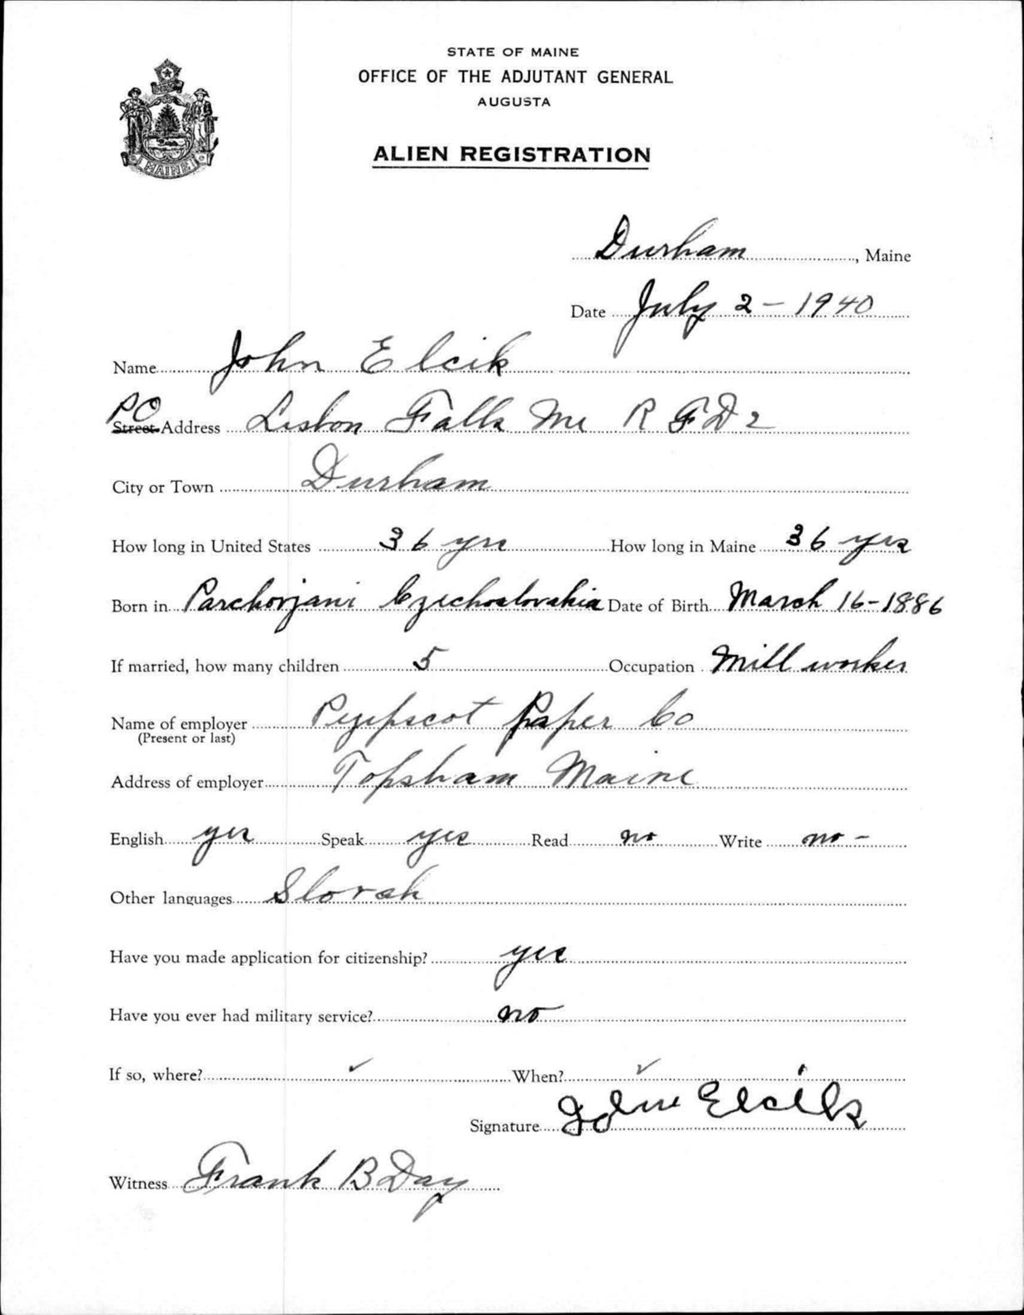 STATE OF MAINE
OFFICE OF THE ADJUTANT GENERAL
AUGUSTA
ALIEN REGISTRATION
MAINE
Durham, Maine
Date July 2-1940
Name John Elcik
PO Street Address Lisbon Falls Me R F D 2
City or Town Durham
How long in United States 36 yrs How long in Maine 36 yrs
Born in Parchovjani Czechoslovakia Date of Birth March 16-1886
If married, how many children 5 Occupation Mill worker
Name of employer Pejepscot Paper Co
(Present or last)
Address of employer Topsham Maine
English yes Speak yes Read no Write no -
Other languages Slovak
Have you made application for citizenship? yes
Have you ever had military service? no
If so, where? ✓ When? ✓
Signature John Elcik
Witness Frank B Day